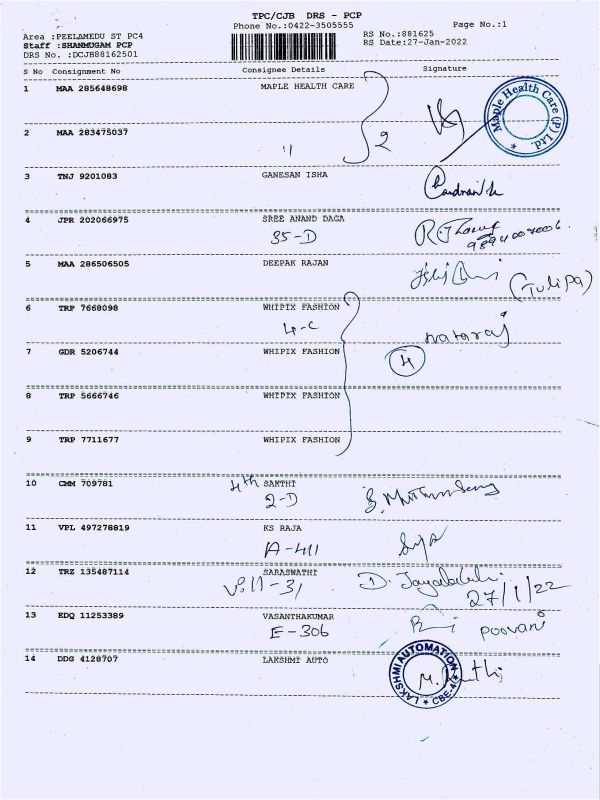 TPC/CJB DRS - PCP
Phone No.:0422-3505555
Page No.:1
Area :PEELAMEDU ST PC4
RS No.:881625
Staff :SHANMUGAM PCP
RS Date:27-Jan-2022
DRS No. :DCJB88162501
S No Consignment No Consignee Details Signature
1 MAA 285648698 MAPLE HEALTH CARE
Maple Health Care (P) Ltd.
2 MAA 283475037
" 2
3 TNJ 9201083 GANESAN ISHA
4 JPR 202066975 SREE ANAND DAGA
35-D
9894007006
5 MAA 286506505 DEEPAK RAJAN
(Tulipa)
6 TRP 7668098 WHIPIX FASHION
4-C
nataraj
7 GDR 5206744 WHIPIX FASHION
4
8 TRP 5666746 WHIPIX FASHION
9 TRP 7711677 WHIPIX FASHION
10 CMM 709781 4th SAKTHI
2-D
11 VPL 497278819 KS RAJA
A-411
12 TRZ 135487114 SARASWATHI
27/1/22
13 EDQ 11253389 VASANTHAKUMAR
E-306 poovani
14 DDG 4128707 LAKSHMI AUTO
LAKSHMI AUTOMATION
CBE-4